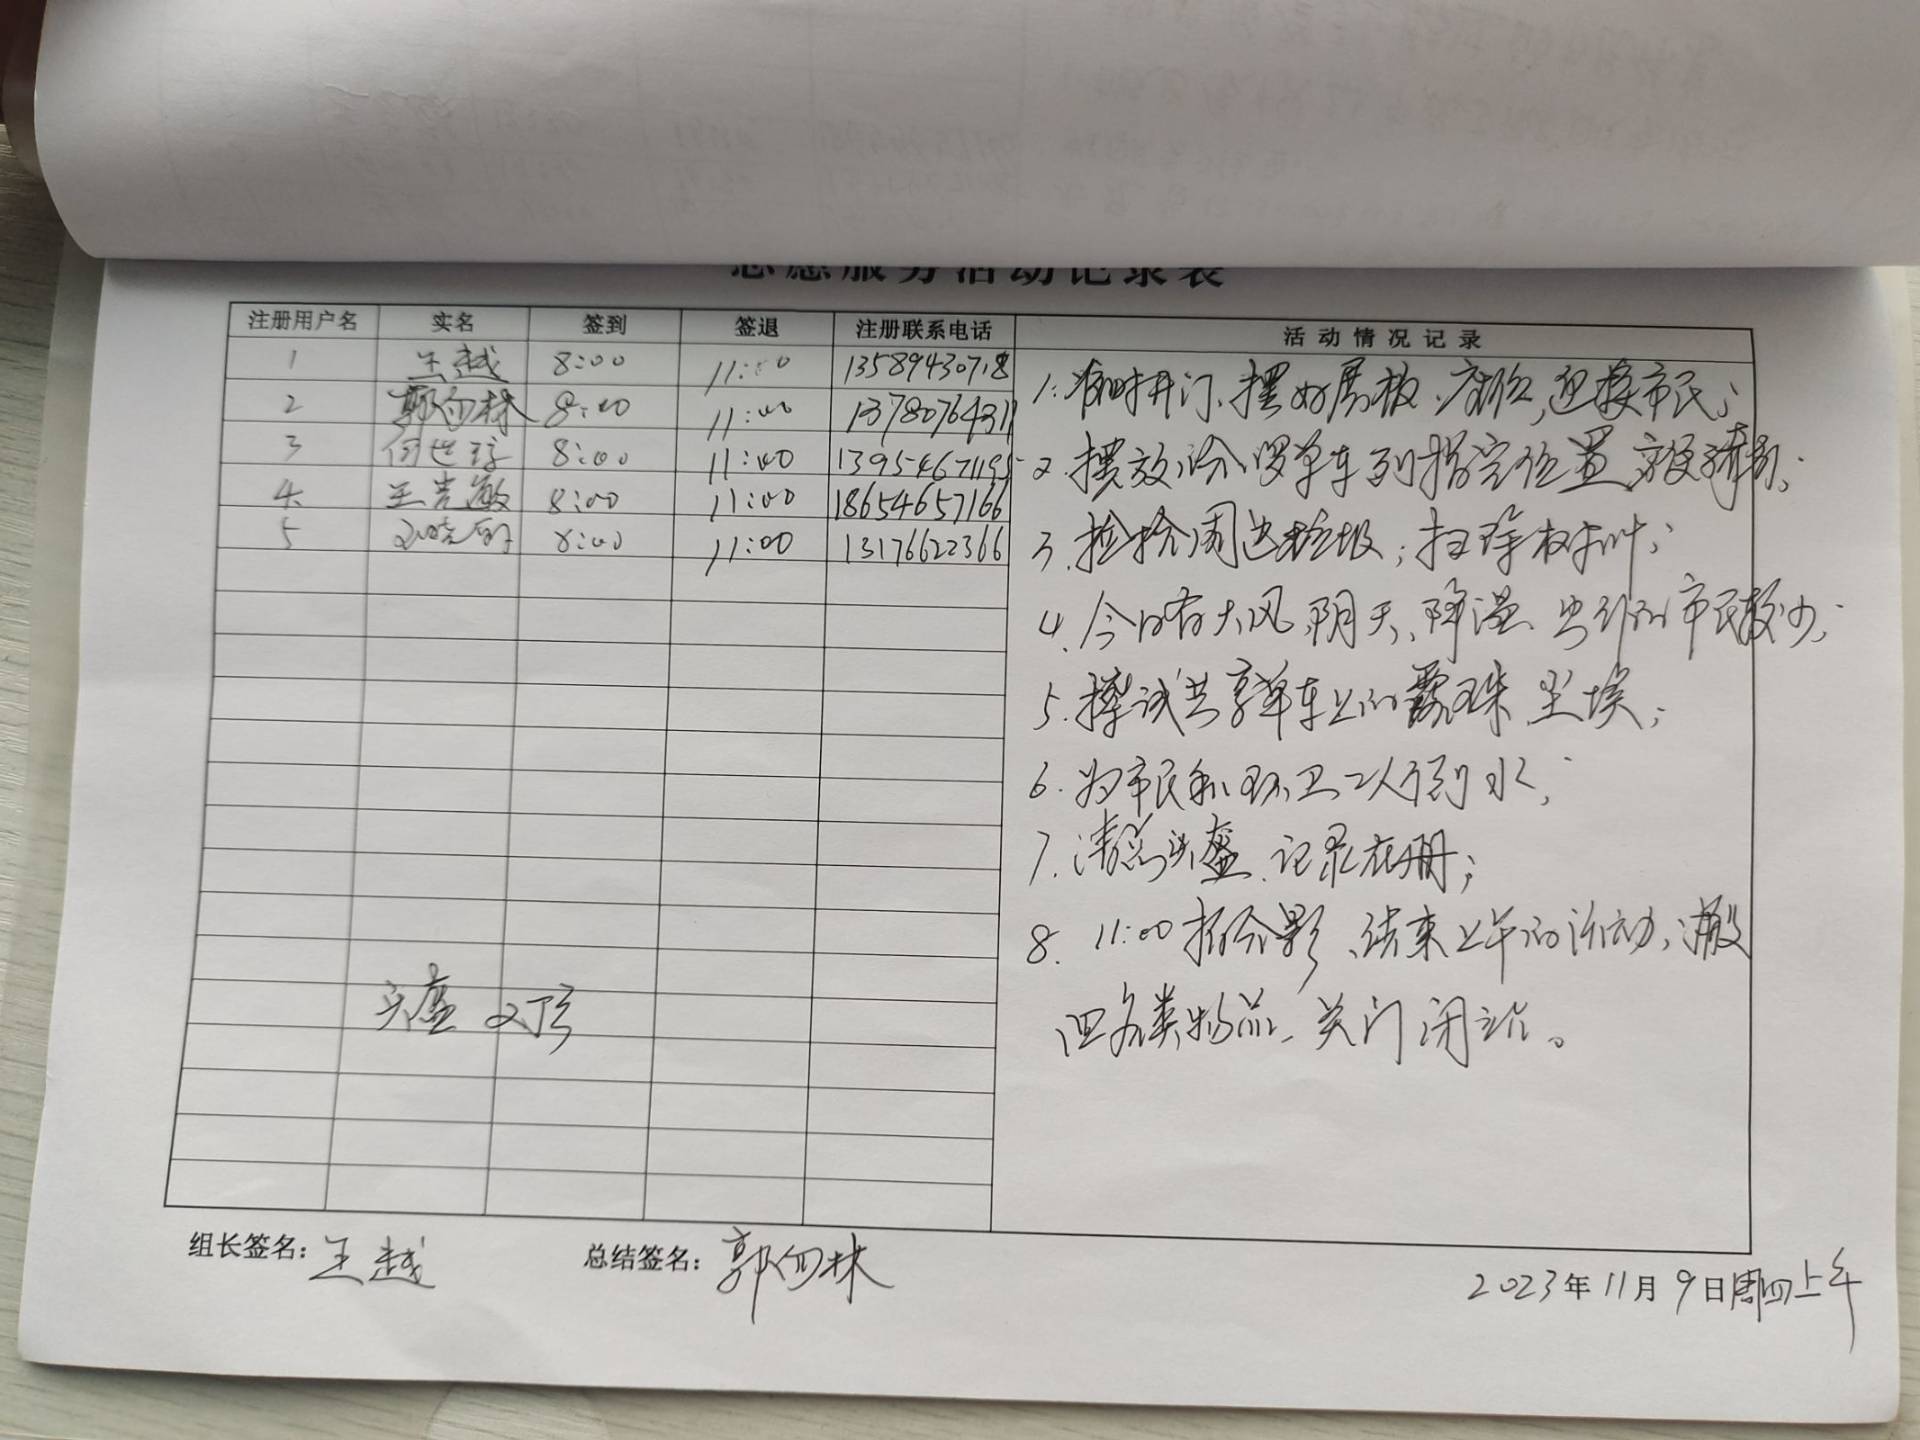 志愿服务活动记录表
注册用户名 实名 签到 签退 注册联系电话 活动情况记录
1 王越 8:00 11:00 13589430718
2 郭向林 8:00 11:00 13780764311
3 何世 8:00 11:00 13954671195
4 王岩敏 8:00 11:00 18654657166
5 8:00 11:00 13176622366
1. 准时开门、摆好展板、迎接市民;
2. 摆放单车到指定位置,方便骑行;
3. 捡拾周边垃圾;扫除树叶;
4. 今日有大风、阴天、降温、出行的市民较少;
5. 擦试共享单车上的露珠、尘埃;
6. 为市民和环卫工人倒水;
7. 清点头盔、记录在册;
8. 11:00拍合影、结束上午的活动,撤
回各类物品,关门闭站。
头盔 2顶
组长签名:王越 总结签名:郭向林
2023年11月9日周四上午